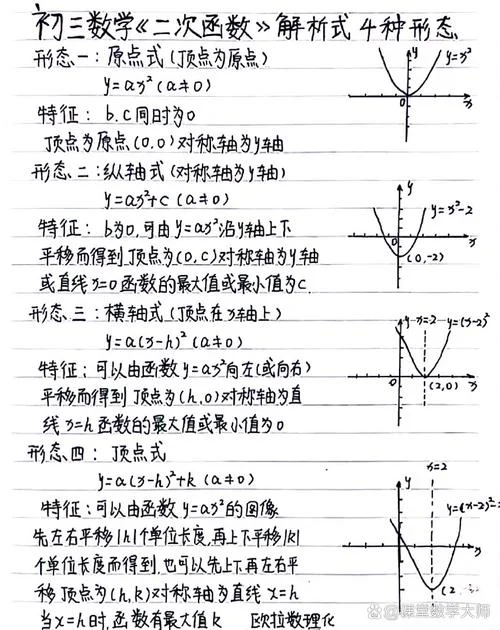 初三数学《二次函数》解析式4种形态
形态一：原点式(顶点为原点)
y=ax²(a≠0)
特征：b.c同时为0
顶点为原点(0,0)对称轴为y轴
y
y=x²
0
x
形态二：纵轴式(对称轴为y轴)
y=ax²+c(a≠0)
特征：b为0,可由y=ax²沿y轴上下
平移而得到顶点为(0,c)对称轴为y轴
或直线x=0函数的最大值或最小值为c.
y
y=x²-2
x
(0,-2)
形态三：横轴式(顶点在x轴上)
y=a(x-h)²(a≠0)
特征：可以由函数y=ax²向左(或向右)
平移而得到顶点为(h,0)对称轴为直
线x=h函数的最大值或最小值为0
y
x=2
y=(x-2)²
0
(2,0)
x
形态四：顶点式
y=a(x-h)²+k(a≠0)
特征：可以由函数y=ax²的图像
先左右平移|h|个单位长度,再上下平移|k|
个单位长度而得到.也可以先上下再左右平
移顶点为(h,k)对称轴为直线x=h
当x=h时,函数有最大值k 欧拉数理化
x=2
y
y=(x-2)²-
x
(2,
@课堂数学大师